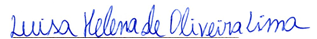 Luisa Helena de Oliveira Lima